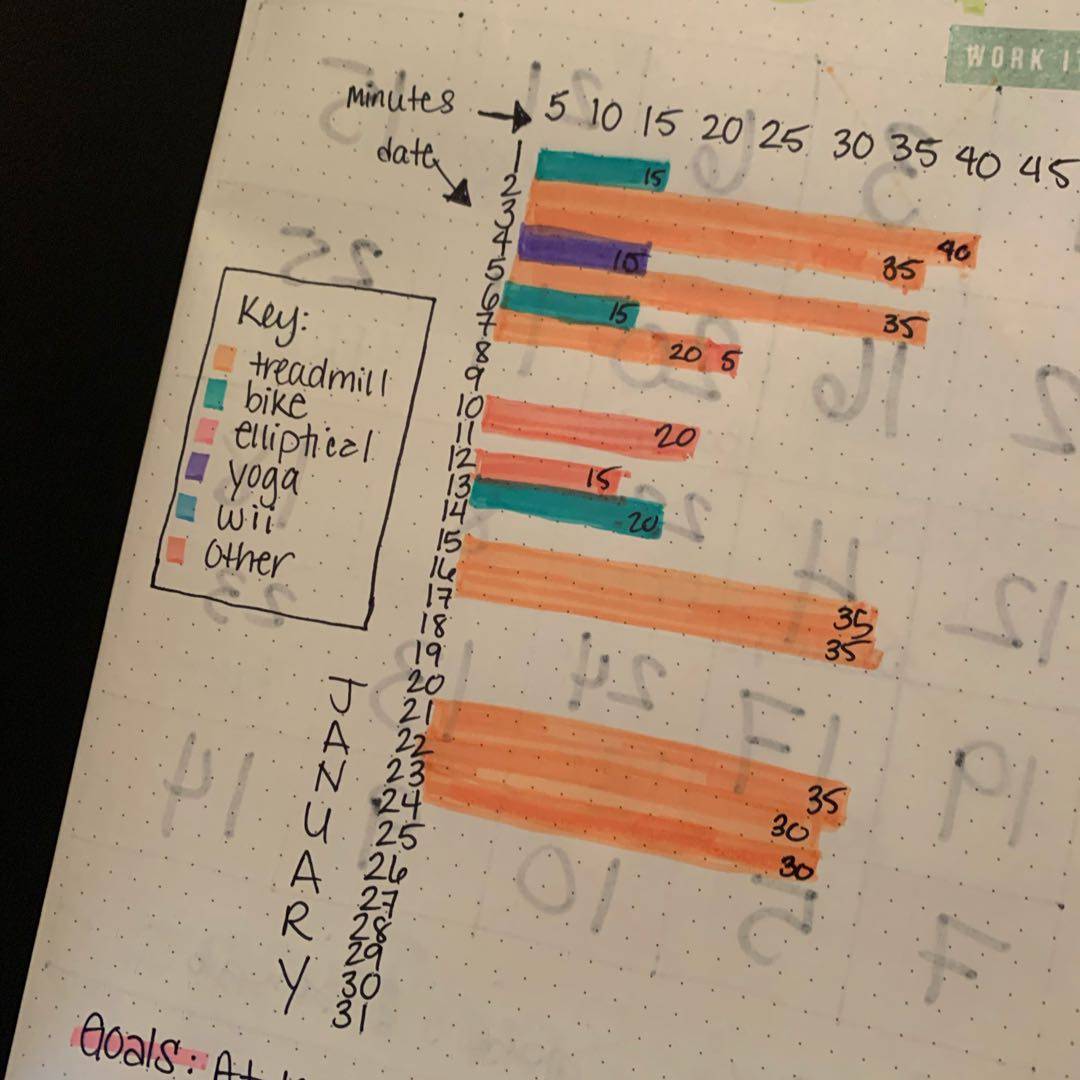 WORK I
minutes → 5 10 15 20 25 30 35 40 45
date
1
15
2
3
40
4
35
10
5
6
35
15
7
20 5
8
9
10
20
11
12
15
13
20
14
15
16
35
17
35
18
19
20
21
35
22
30
23
30
24
25
26
27
28
29
30
31
Key:
treadmill
bike
elliptical
yoga
wii
other
JANUARY
Goals: